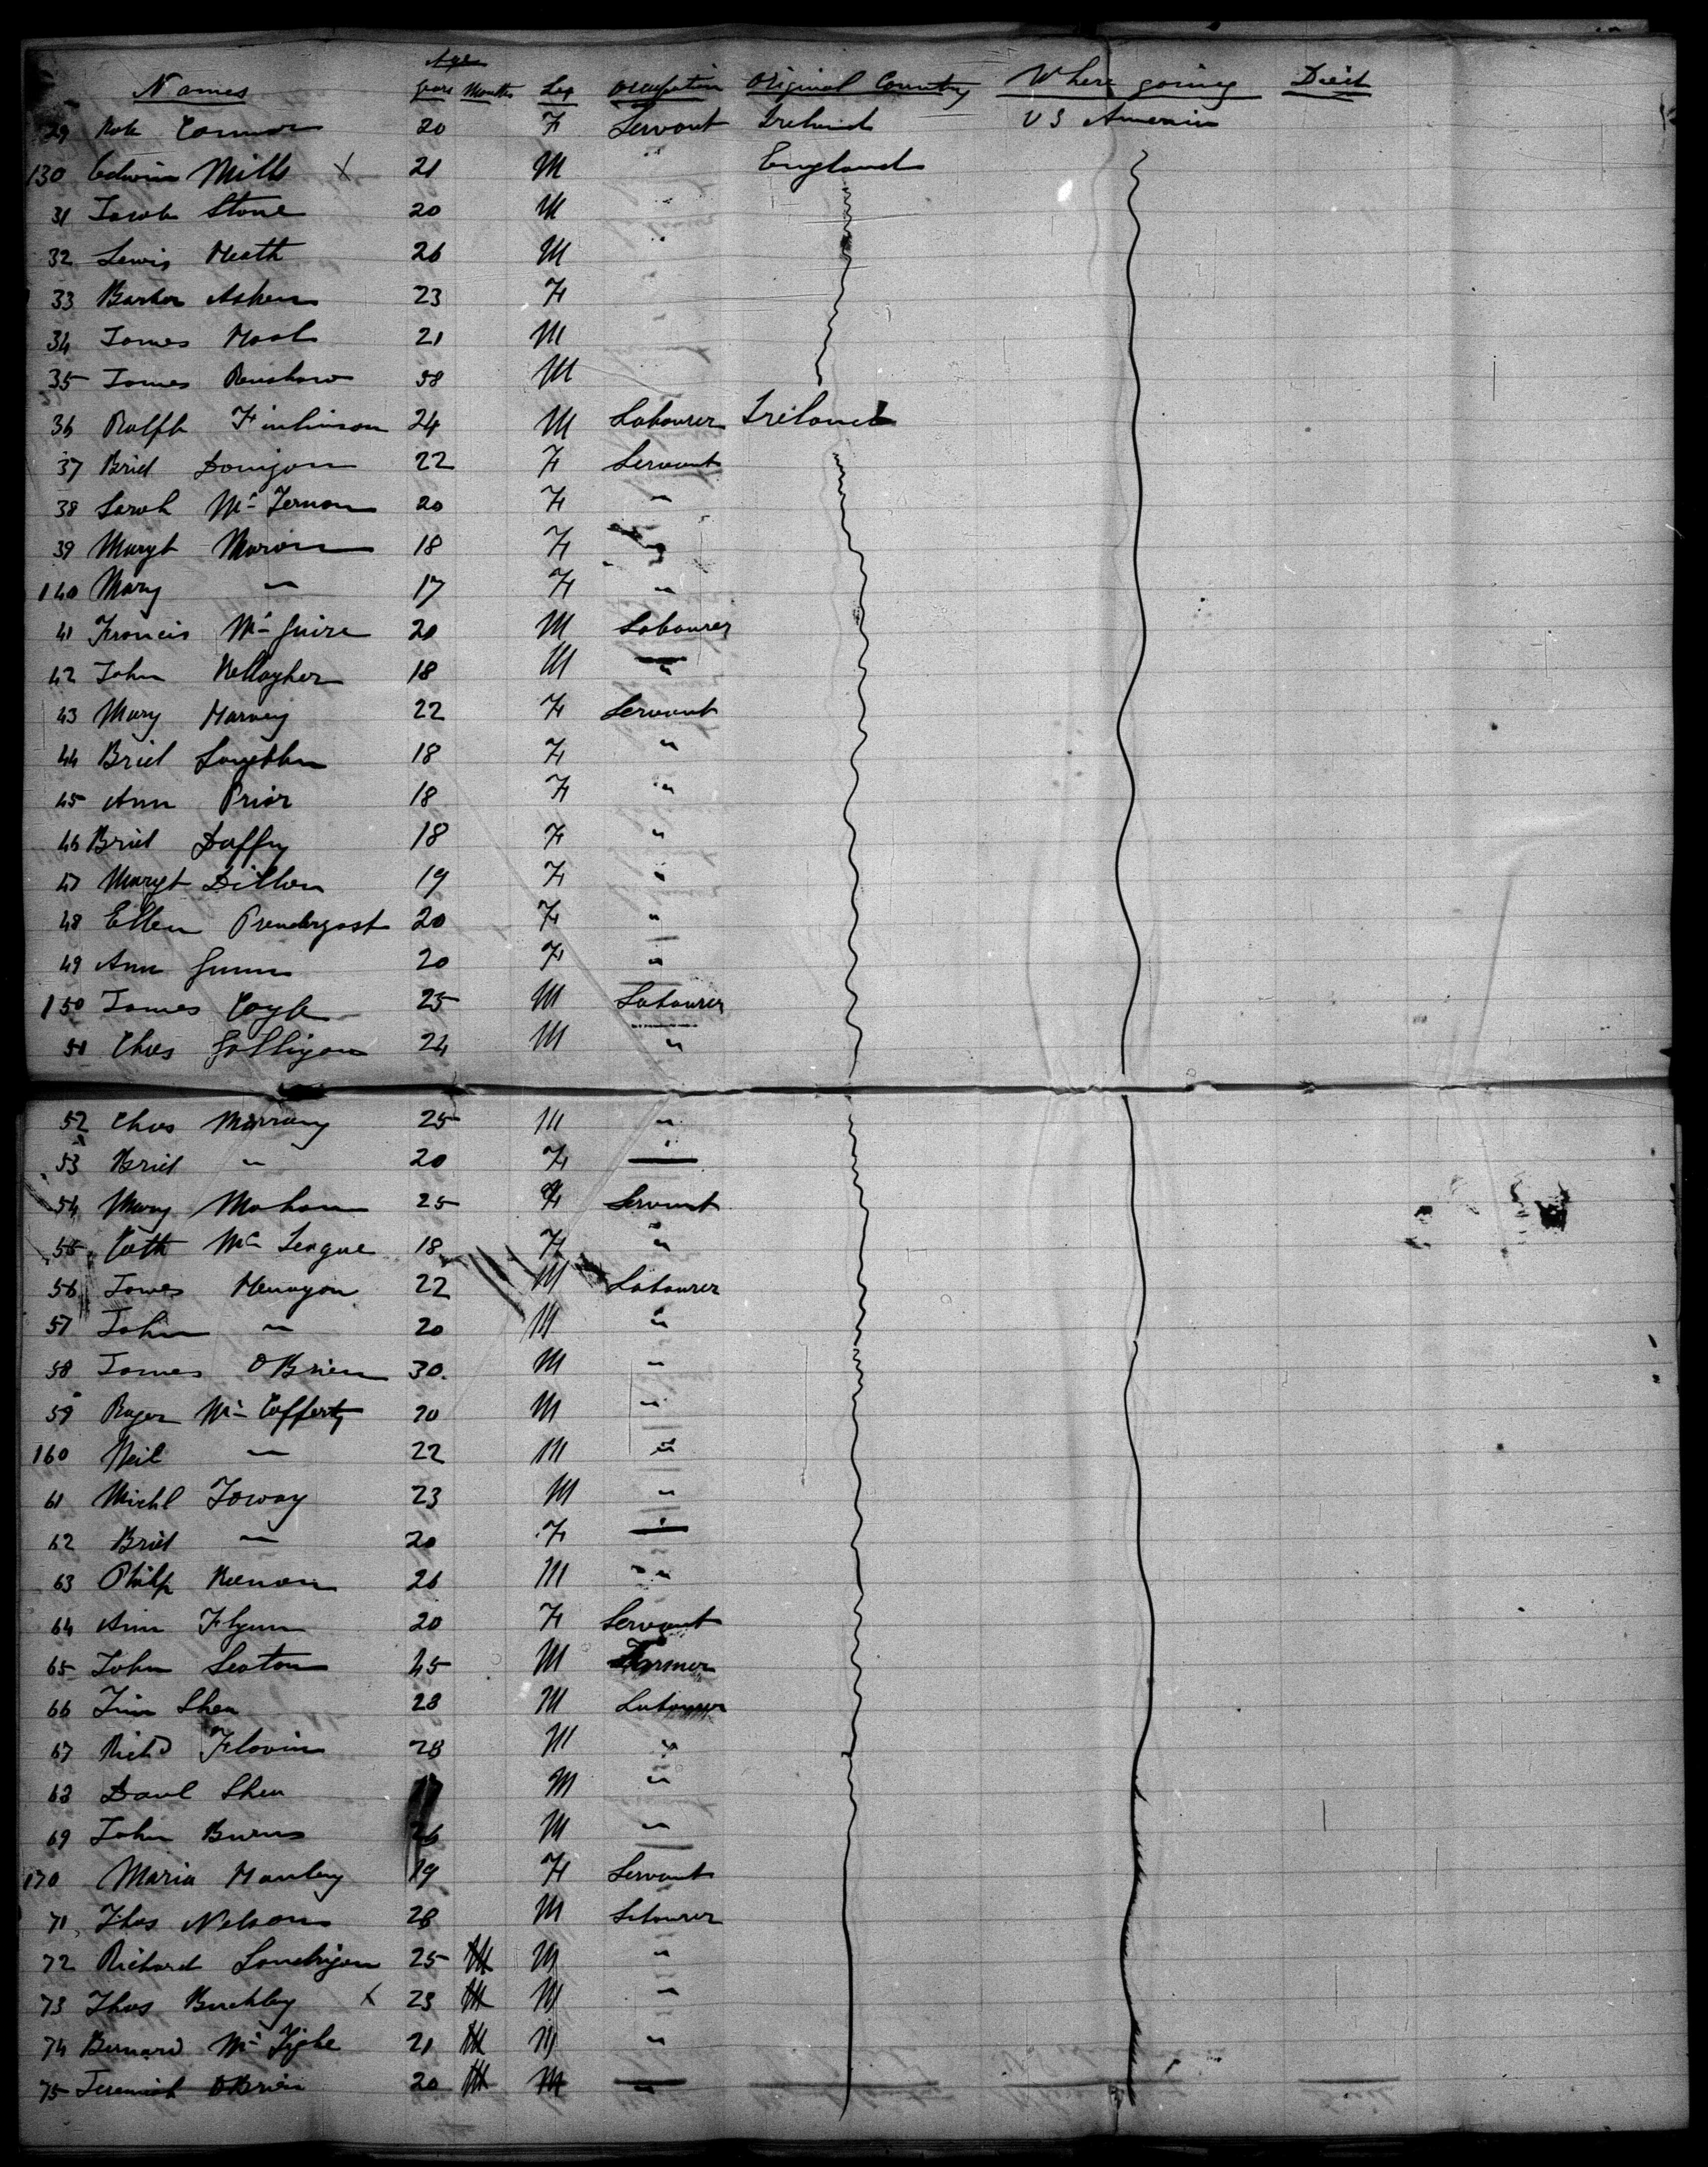 Age
Names years Months Sex Occupation Original Country Where going Died
29 Kate Connor 20 F Servant Ireland U S America
130 Edwin Mills X 21 M " England
31 Jacob Stone 20 M "
32 Lewis Heath 26 M "
33 Barbor 23 F "
34 James 21 M "
35 James Renshaw 58 M
36 Ralph Finlinson 24 M Labourer Ireland
37 Brid Donigan 22 F Servant
38 Sarah Mc Ternan 20 F "
39 Margt Moron 18 F
140 Mary " 17 F "
41 Francis Mc Guire 20 M Labourer
42 John Kellagher 18 M "
43 Mary Harvey 22 F Servant
44 Brid 18 F "
45 Ann Prior 18 F "
46 Brid Duffy 18 F "
47 Margt Dillon 19 F "
48 Ellen Prendergast 20 F "
49 Ann Gunn 20 F "
150 James Coyle 25 M Labourer
51 Chas Galligan 24 M "
52 Chas Murray 25 M "
53 Brid " 20 F
54 Mary Mahon 25 F Servant
55 Cath Mc Teague 18 F "
56 James Henagan 22 M Labourer
57 John " 20 M "
58 James OBrien 30 M "
59 Roger Mc Cafferty 20 M "
160 Neil " 22 M "
61 Michl Towey 23 M "
62 Brid " 20 F
63 Philip Keenan 26 M "
64 Ann Flynn 20 F Servant
65 John Seaton 45 M Farmer
66 Jim Shea 28 M Labourer
67 Richd Flavin 28 M "
68 Danl Shea M "
69 John Burns 26 M "
170 Maria Hanley 19 F Servant
71 Thos Nelson 28 M Labourer
72 Richard Londrigan 25 M M "
73 Thos Buckley X 23 M M "
74 Bernard Mc Tighe 21 M M "
75 Jeremiah OBrien 20 M M "